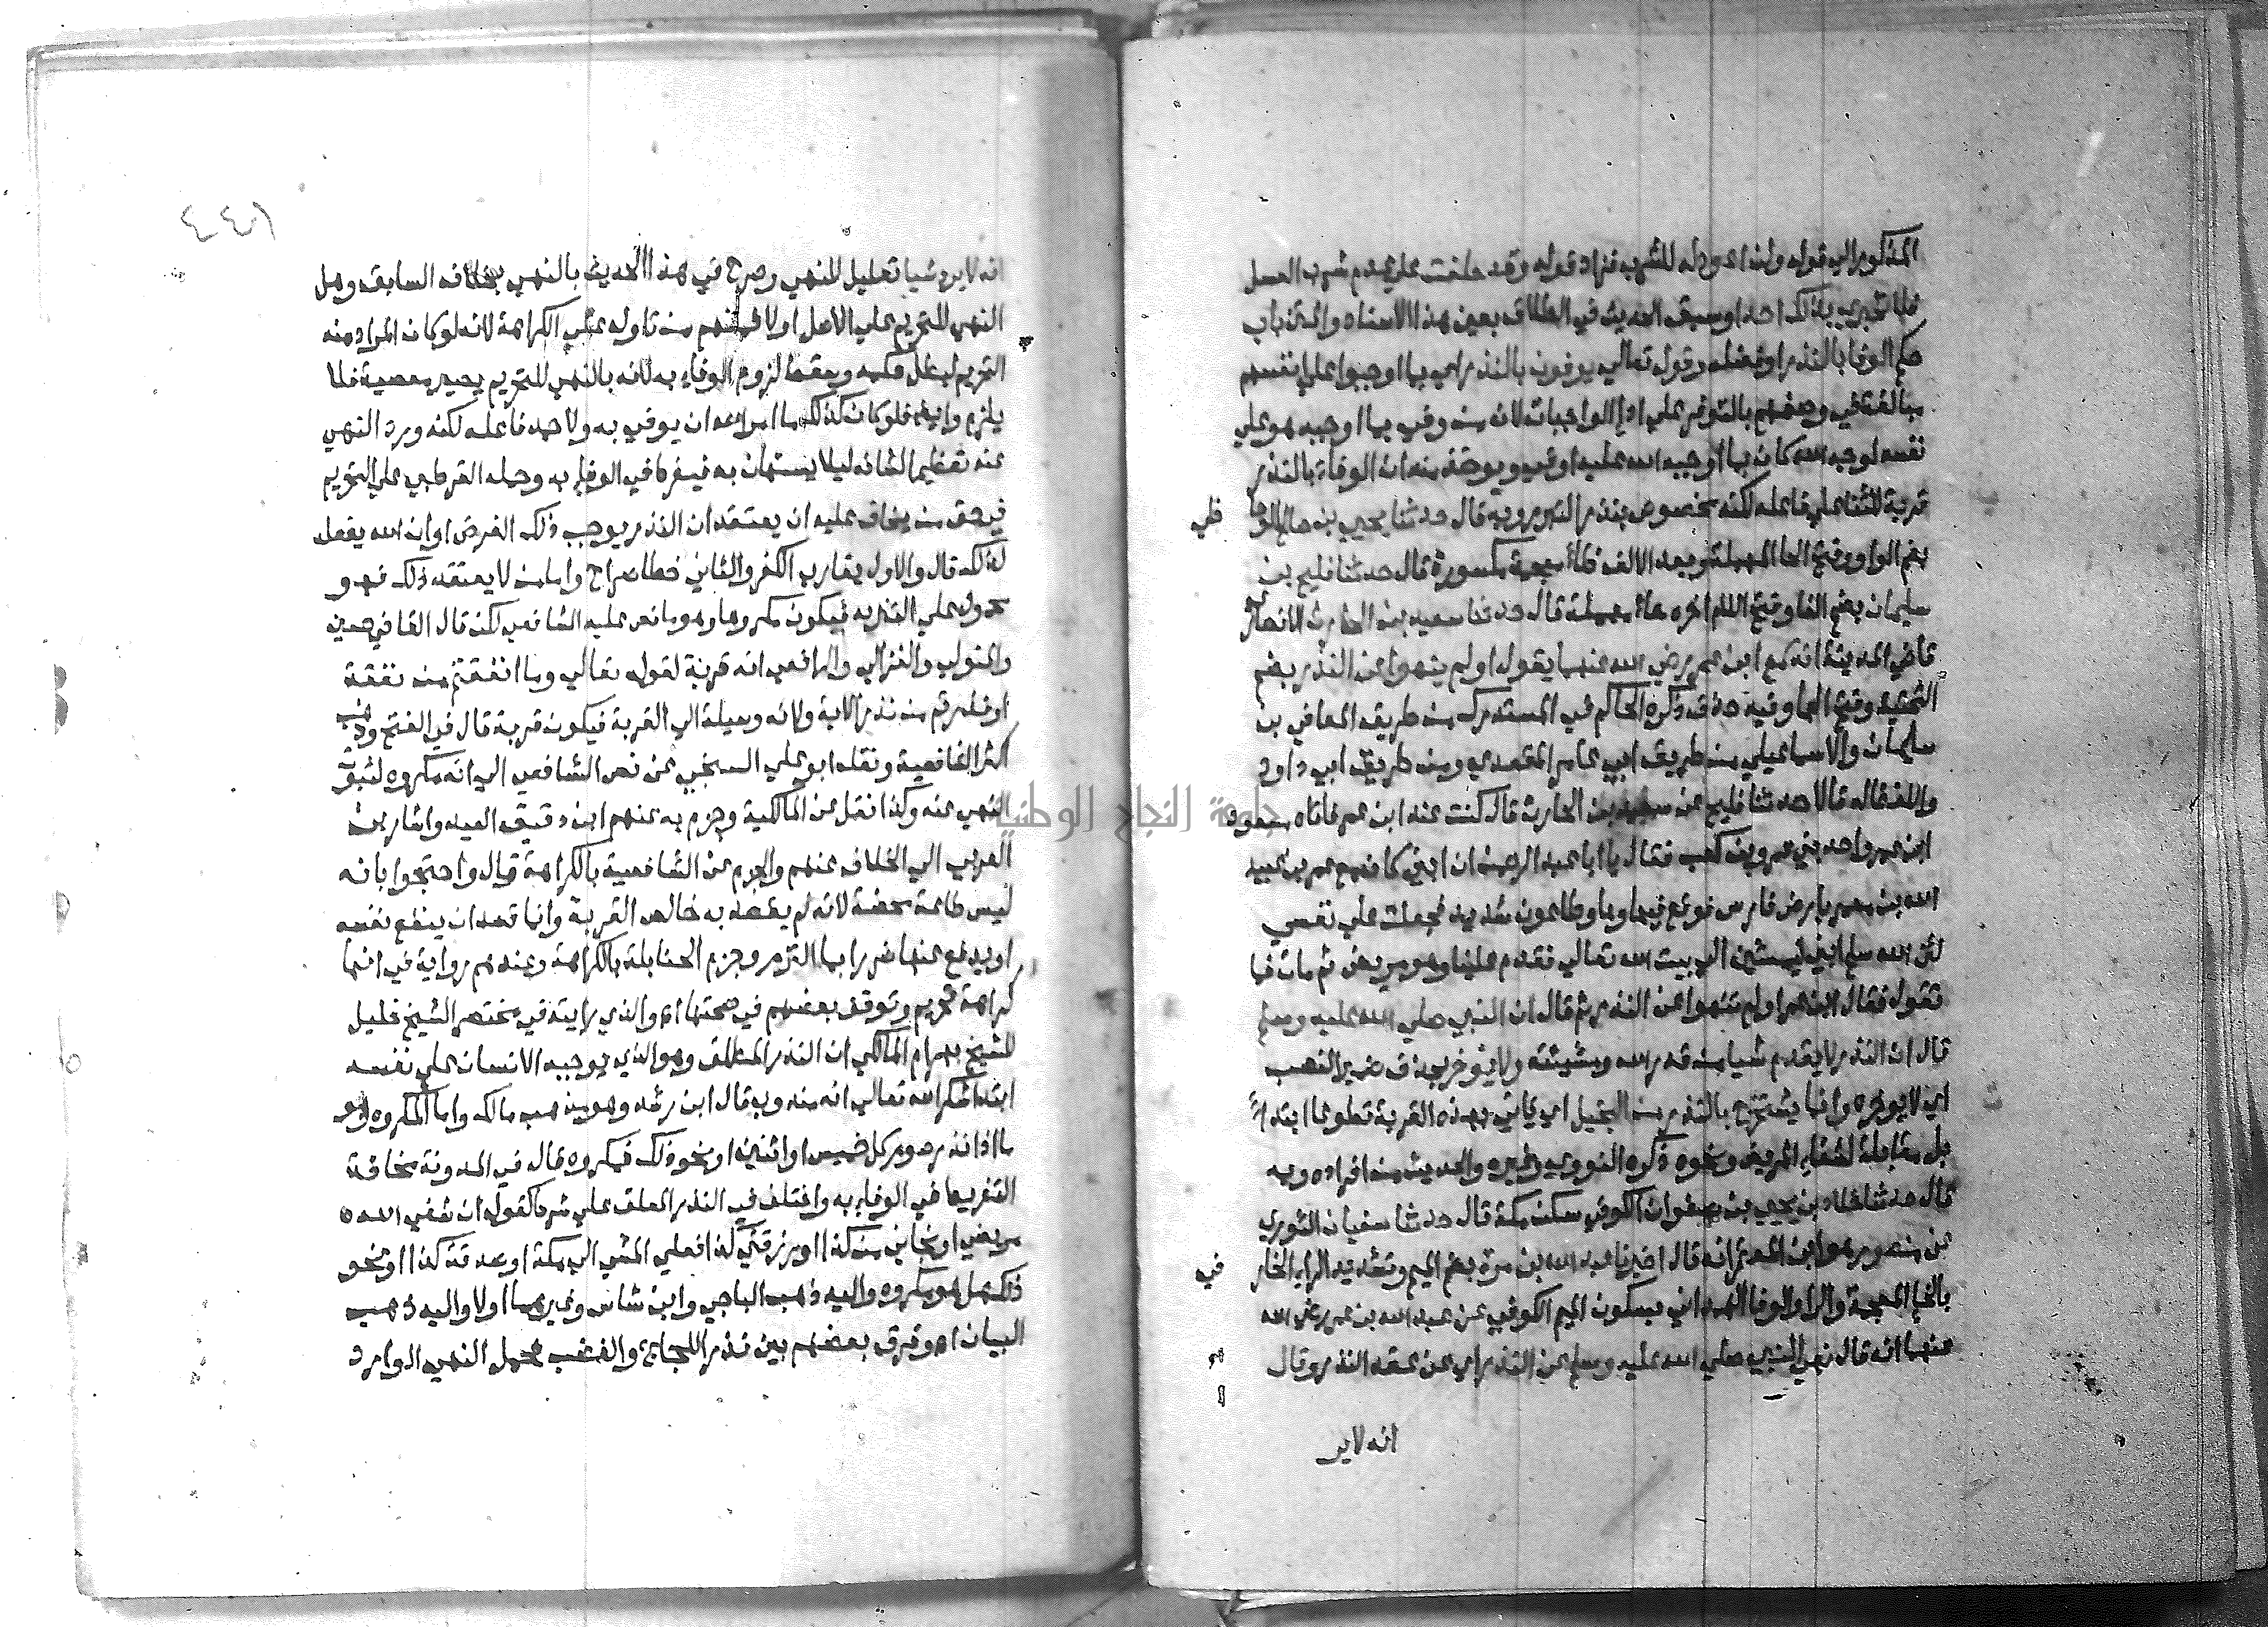 المذكور الي قوله ولن اعود له للشرب فزاد قوله وقد حلفت علي عدم شرب العسل
فلا تخبري بذلك احدا وسبق الحديث في الطلاق بعين هذا الاسناد والمتن باب
حكم الوفا بالنذر او فضله وقول تعالي يوفون بالنذر اي بما اوجبوا علي انفسهم
مبالغة في وصفهم بالتوفر علي ادا الواجبات لانه من وفي بما اوجبه هو علي
نفسه لوجه الله كان بما اوجبه الله عليه اوفي ويوخذ منه ان الوفاء بالنذر
قربة للثنا علي فاعله لكنه مخصوص بنذر التبرر وبه قال حدثنا يحيي بن صالح الوحا
ظي
بضم الواو وفتح الحا المهملة وبعد الالف ظا معجمة مكسورة قال حدثنا فليح بن
سليمان بضم الفا وفتح اللام اخره حاء مهملة قال حدثنا سعيد بن الحارث الانصاري
قاضي المدينة انه سمع ابن عمر رضي الله عنهما يقول اولم ينهوا عن النذر بضم
التحتية وفتح الها وفيه حذف ذكره الحاكم في المستدرك من طريق المعافي بن
سليمان والاسماعيلي من طريق ابي عامر العقدي ومن طريق ابي داود
واللفظ له قالا حدثنا فليح عن سعيد بن الحارث قال كنت عند ابن عمر فاتاه مسعود
ابن عمرو احد بني عمرو بن كعب فقال يا ابا عبد الرحمن ان ابني كان مع عمر بن عبيد
الله بن معمر بارض فارس فوقع فيها وبا وطاعون شديد فجعلت علي نفسي
لئن الله سلم ابني ليمشين الي بيت الله تعالي فقدم علينا وهو مريض ثم مات فما
تقول فقال ابن عمر اولم تنهوا عن النذر ثم قال ان النبي صلي الله عليه وسلم
قال ان النذر لا يقدم شيا من قدر الله ومشيئته ولا يوخر بحذف ضمير النصب
اي لا يوخره وانما يستخرج بالنذر من البخيل اي ياتي بهذه القربة تطوعا ابتداء
بل مقابلة لشفاء المريض ونحوه ذكره النووي وغيره والحديث من افراده وبه
قال حدثنا خلاد بن يحيي بن صفوان الكوفي سكن مكة قال حدثنا سفيان الثوري
عن منصور هو ابن المعتمر انه قال اخبرنا عبد الله بن مرة بضم الميم وتشديد الراء الخار
في
بالخا المعجمة والراء والفا الهمداني بسكون الميم الكوفي عن عبد الله بن عمر رضي الله
عنهما انه قال نهي النبي صلي الله عليه وسلم عن النذر اي عن عقد النذر وقال
انه لا ير
٢٤٨
انه لا يرد شيا تعليل للنهي وصرح في هذا الحديث بالنهي بخلاف السابق وهل
النهي للتحريم علي الاصل اولا فمنهم من تاوله علي الكراهة لانه لو كان المراد منه
التحريم لبطل حكمه وسقط لزوم الوفاء به لانه بالنهي للتحريم يصير معصية فلا
يلزم وايضا فلو كان كذلك ما امر الله ان يوفي به ولا حمد فاعله لكنه ورد النهي
عنه تعظيما لشانه ليلا يستهان به فيفرط في الوفاء به وحمله القرطبي علي التحريم
في حق من يخاف عليه ان يعتقد ان النذر يوجب ذلك الغرض او ان الله يفعل
لذلك قال والاول يقارب الكفر والثاني خطا صراح واما من لا يعتقد ذلك فهو
محمول علي التنزيه فيكون مكروها وهو ما نص عليه الشافعي لكن قال القاضي حسين
والمتولي والغزالي والرافعي انه قربة لقوله تعالي وما انفقتم من نفقة
او نذرتم من نذر الاية ولانه وسيلة الي القربة فيكون قربة قال في الفتح وذهب
اكثر الشافعية ونقله ابو علي السنجي عن نص الشافعي الي انه مكروه لثبوت
النهي عنه وكذا نقل عن المالكية وجزم به عنهم ابن دقيق العيد واشار بن
العربي الي الخلاف عنهم والجزم عن الشافعية بالكراهة قال واحتجوا بانه
ليس طاعة محضة لانه لم يقصد به خالص القربة وانما قصد ان ينفع نفسه
او يدفع عنها ضررا بما التزم وجزم الحنابلة بالكراهة وعندهم رواية في انها
كراهة تحريم وتوقف بعضهم في صحتها اه والذي رايته في مختصر الشيخ خليل
للشيخ بهرام المالكي ان النذر المطلق وهو الذي يوجبه الانسان علي نفسه
ابتداء شكرا لله تعالي انه مندوب قال ابن رشد وهو مذهب مالك واما المكروه وهو
ما اذا نذر صوم كل خميس او اثنين او نحو ذلك فمكروه قال في المدونة مخافة
التفريط في الوفاء به واختلف في النذر المعلق علي شرط كقوله ان شفي الله
مريضي او نجاني من كذا او رزقني كذا فعلي المشي الي مكة او صدقة كذا او نحو
ذلك هل هو مكروه واليه ذهب الباجي وابن شاس وغيرهما اولا واليه ذهب
البيان اه وفرق بعضهم بين نذر اللجاج والغضب فحمل النهي الوارد
جامعة النجاح الوطنية